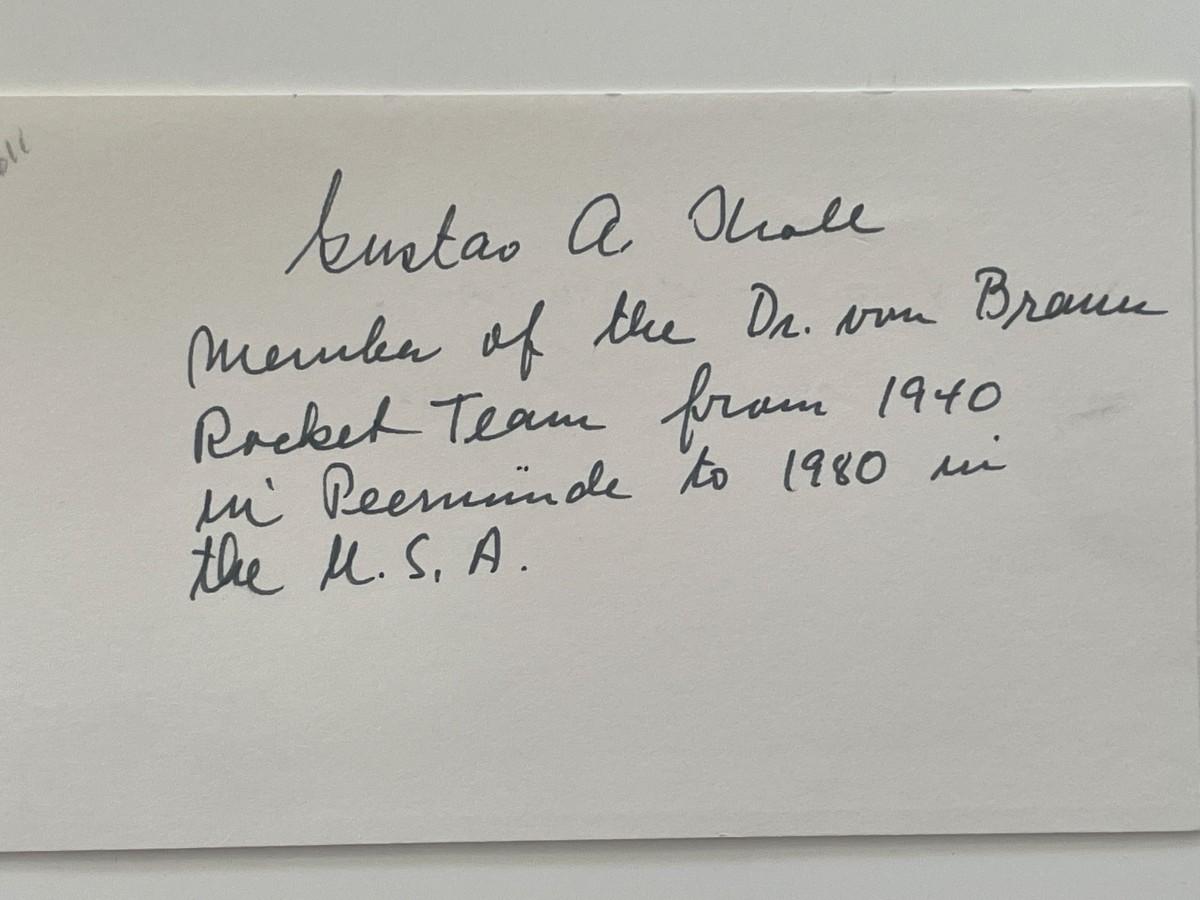 Gustav A. Kroll
Member of the Dr. von Braun
Rocket Team from 1940
in Peenmünde to 1980 in
the U.S.A.